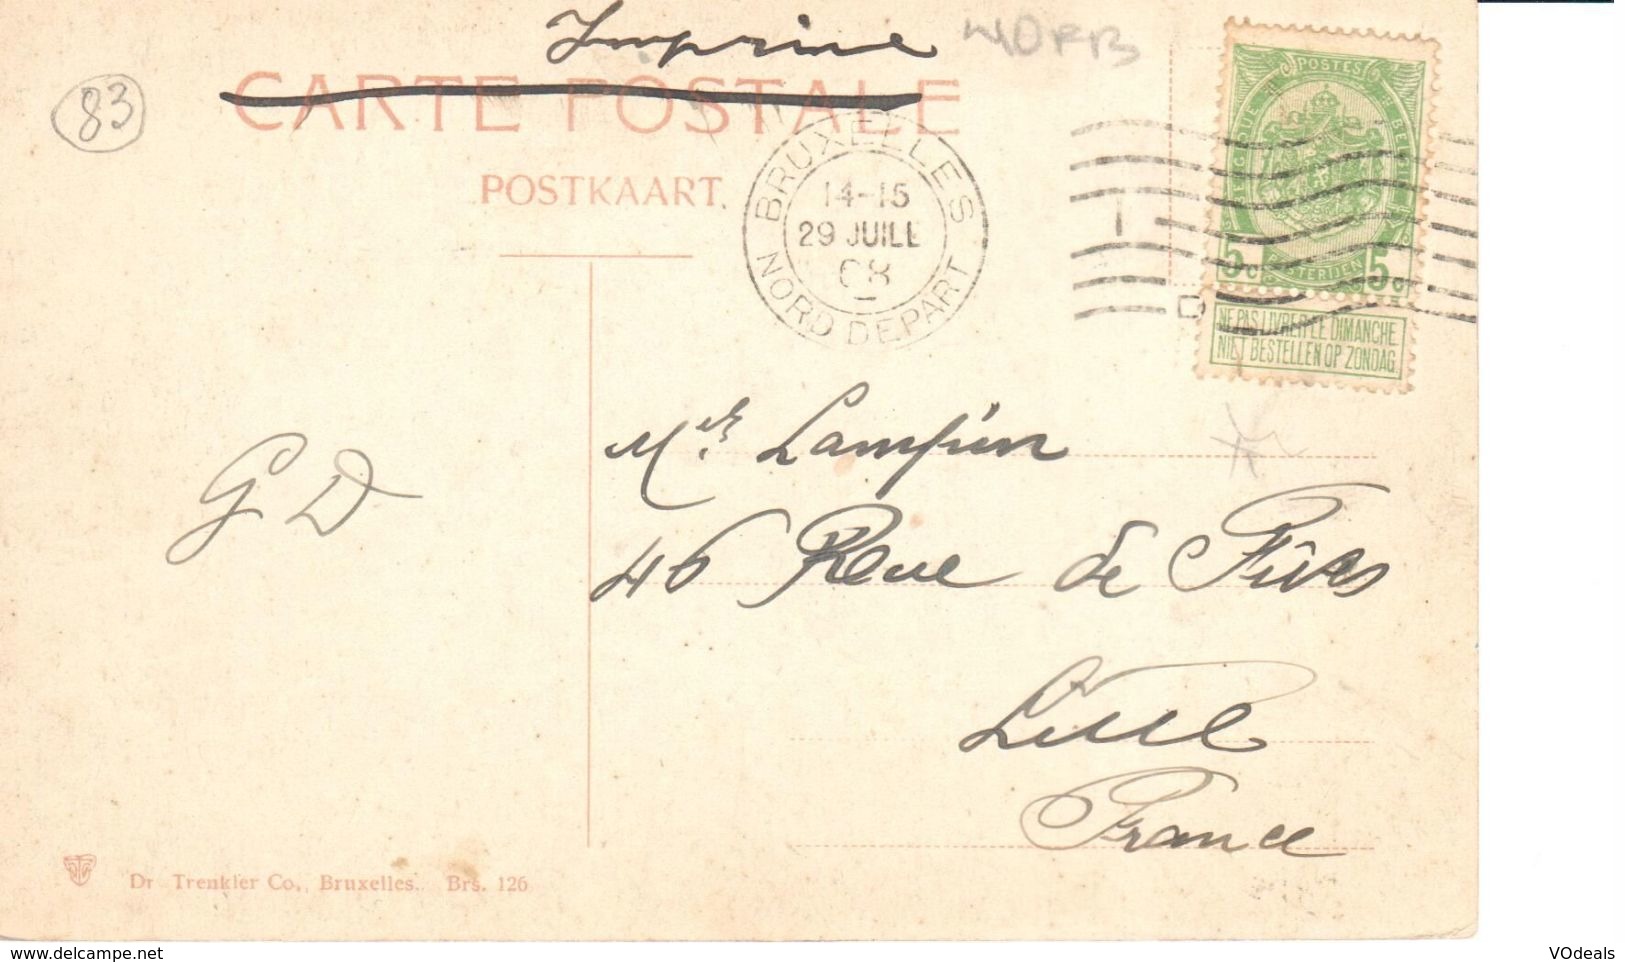 Imprimé
83
CARTE POSTALE
POSTKAART.
BRUXELLES
14-15
29 JUILL
08
NORD DEPART
POSTES
BELGIQUE
BELGIË
POSTERIJEN
5c 5c
NE PAS LIVRER LE DIMANCHE.
NIET BESTELLEN OP ZONDAG.
G D
Mr Lampin
46 Rue de Fives
Lille
France
Dr Trenkler Co., Bruxelles. Brs. 126
VOdeals